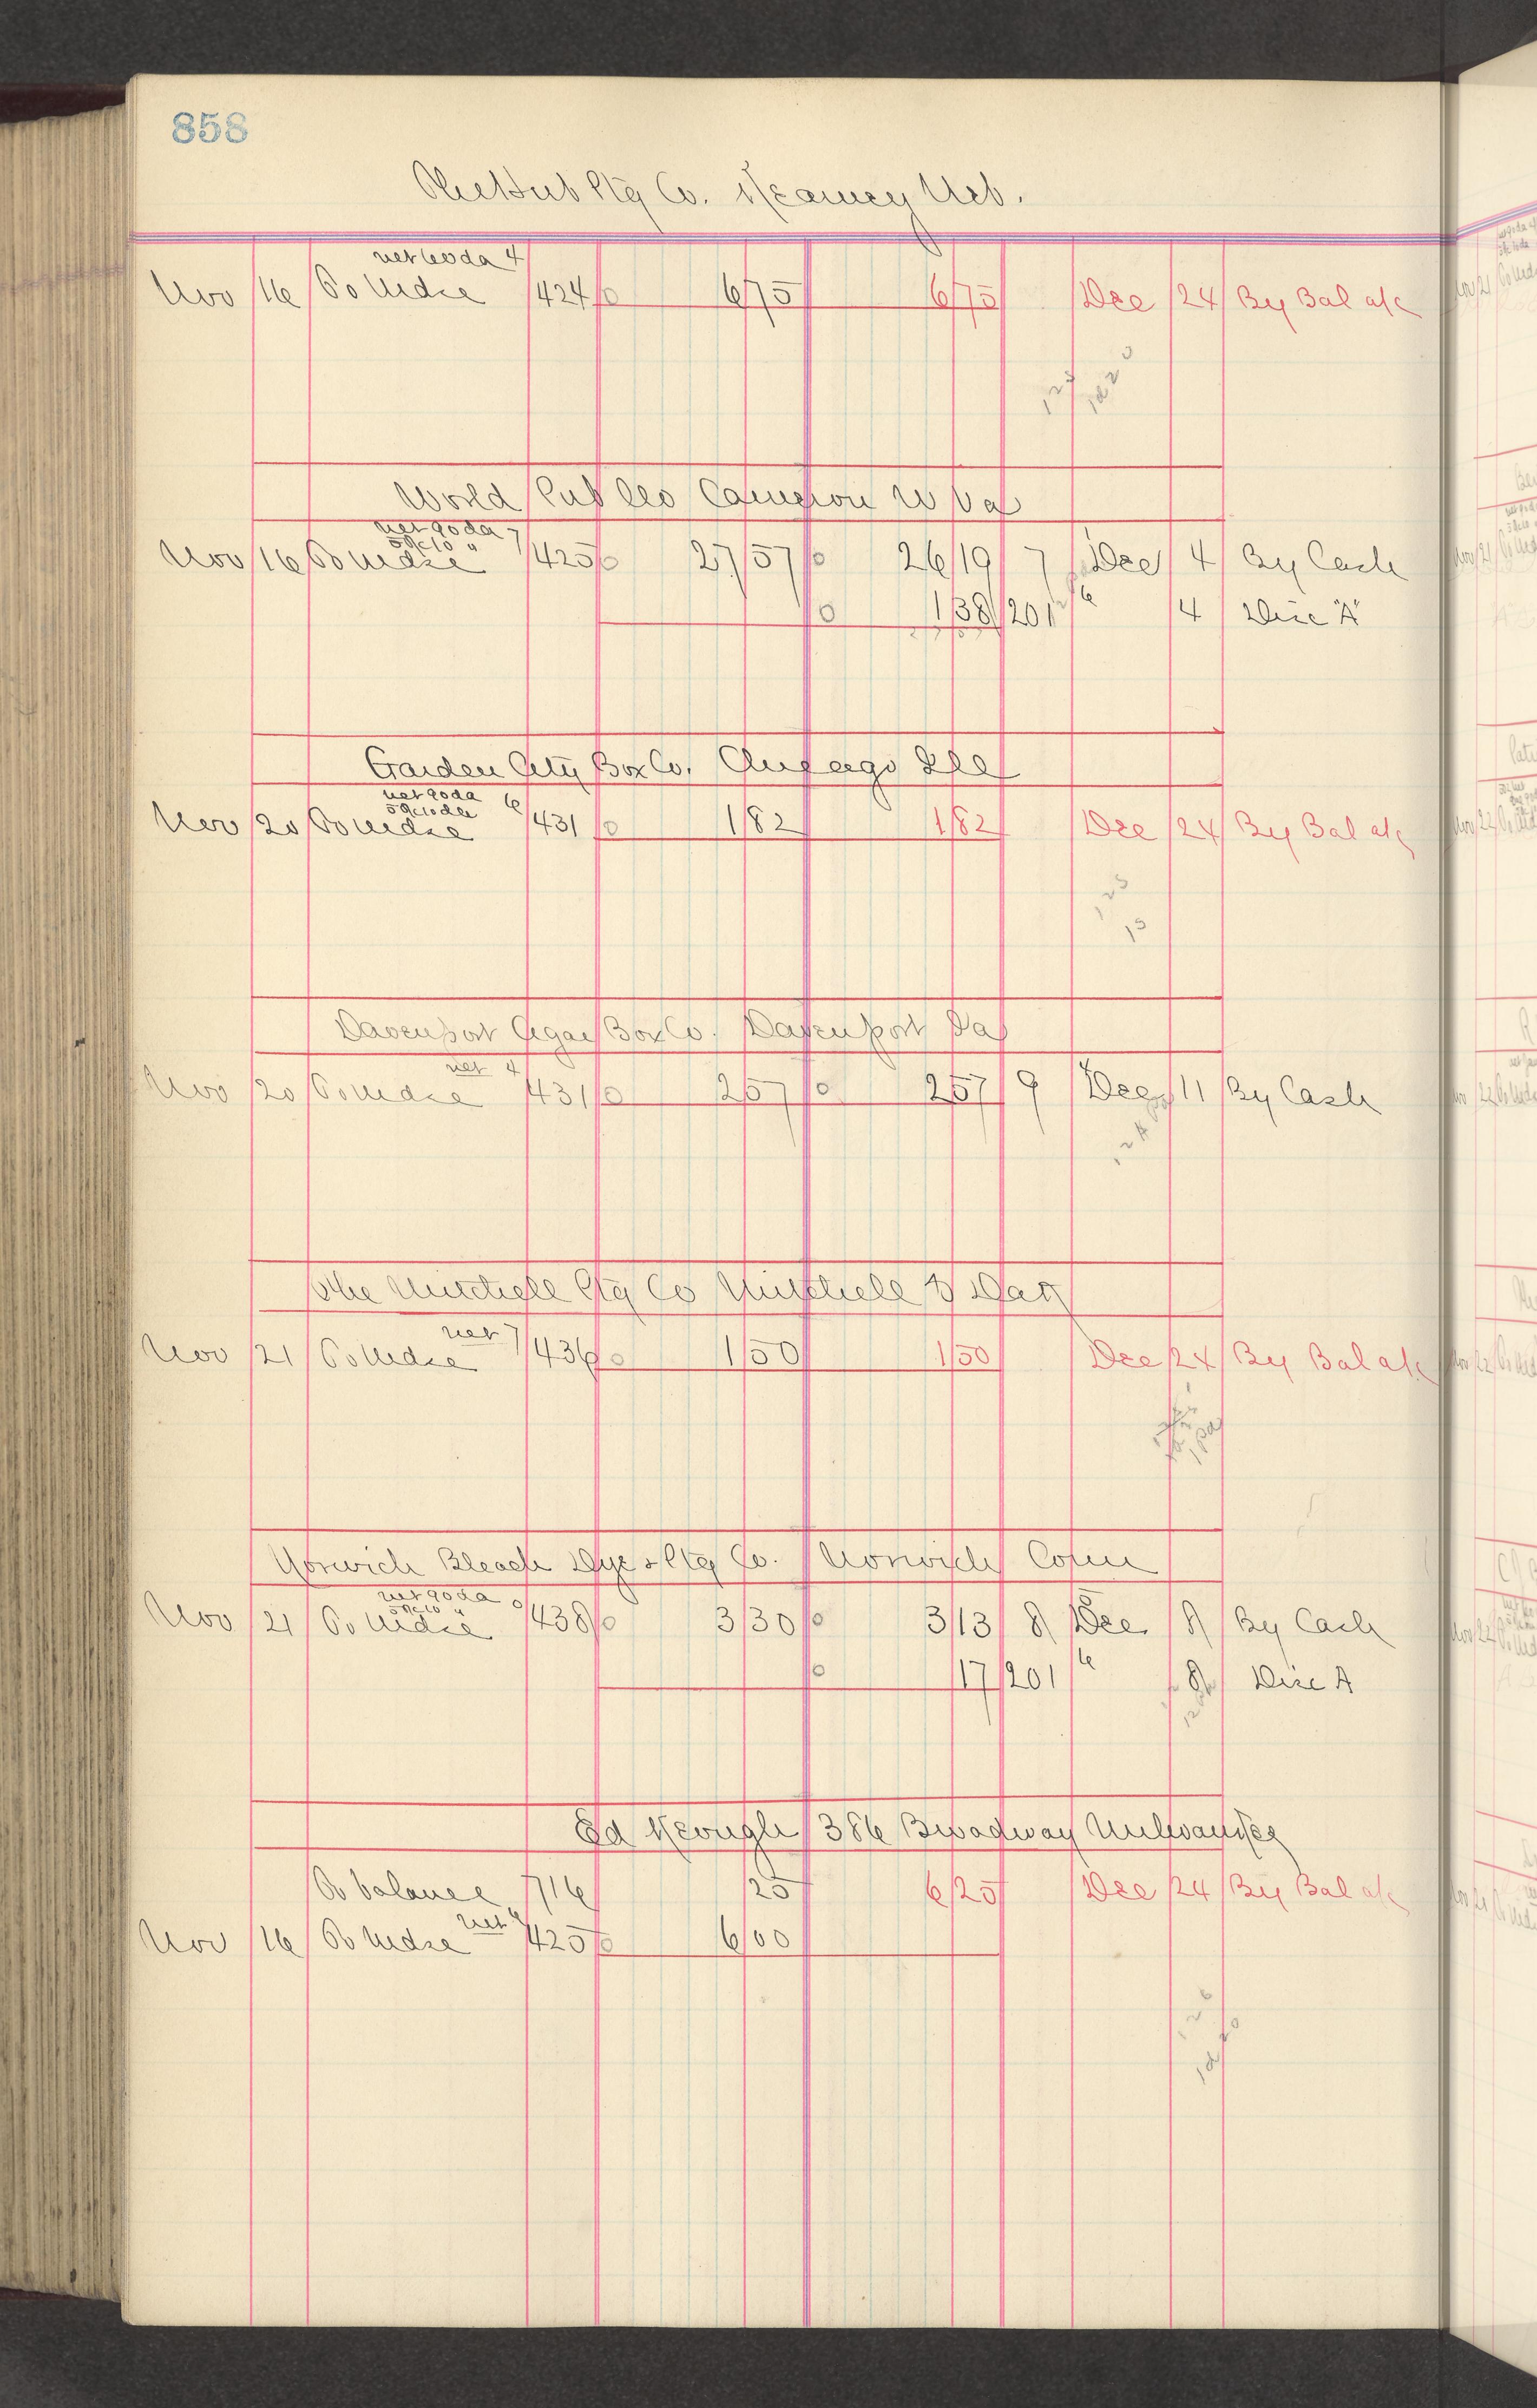 858
The Hub Ptg Co. Kearney Neb.
net 60 da 4
Nov 16 To Mdse 424 0 6 75 6 75 Dec 24 By Bal a/c
World Pub Co Cameron W Va
net 90 da 7
5% 10 "
Nov 16 To Mdse 425 0 27 57 0 26 19 7 Dec 4 By Cash
0 1 38 201 4 Disc "A"
Garden City Box Co. Chicago Ill
net 90 da 6
5% 10 da
Nov 20 To Mdse 431 0 1 82 1 82 Dec 24 By Bal a/c
Davenport Cigar Box Co. Davenport Ia
net 4
Nov 20 To Mdse 431 0 2 57 0 2 57 9 Dec 11 By Cash
The Mitchell Ptg Co Mitchell S Dak
net 7
Nov 21 To Mdse 436 0 1 50 1 50 Dec 24 By Bal a/c
Norwich Bleach Dye & Ptg Co. Norwich Conn
net 90 da 0
5% 10 "
Nov 21 To Mdse 438 0 3 30 0 3 13 8 Dec 8 By Cash
0 17 201 6 8 Disc A
Ed Keough 386 Broadway Milwaukee
To balance 716 25 6 25 Dec 24 By Bal a/c
net 4
Nov 16 To Mdse 425 0 6 00